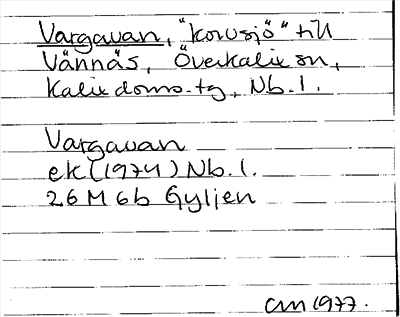 Vargavan, "korusjö" till
Vännäs, Överkalix sn,
Kalix doms.tg, Nb.l.
Vargavan
ek (1974) Nb.l.
26 M 6b Gyljen
CM 1977.